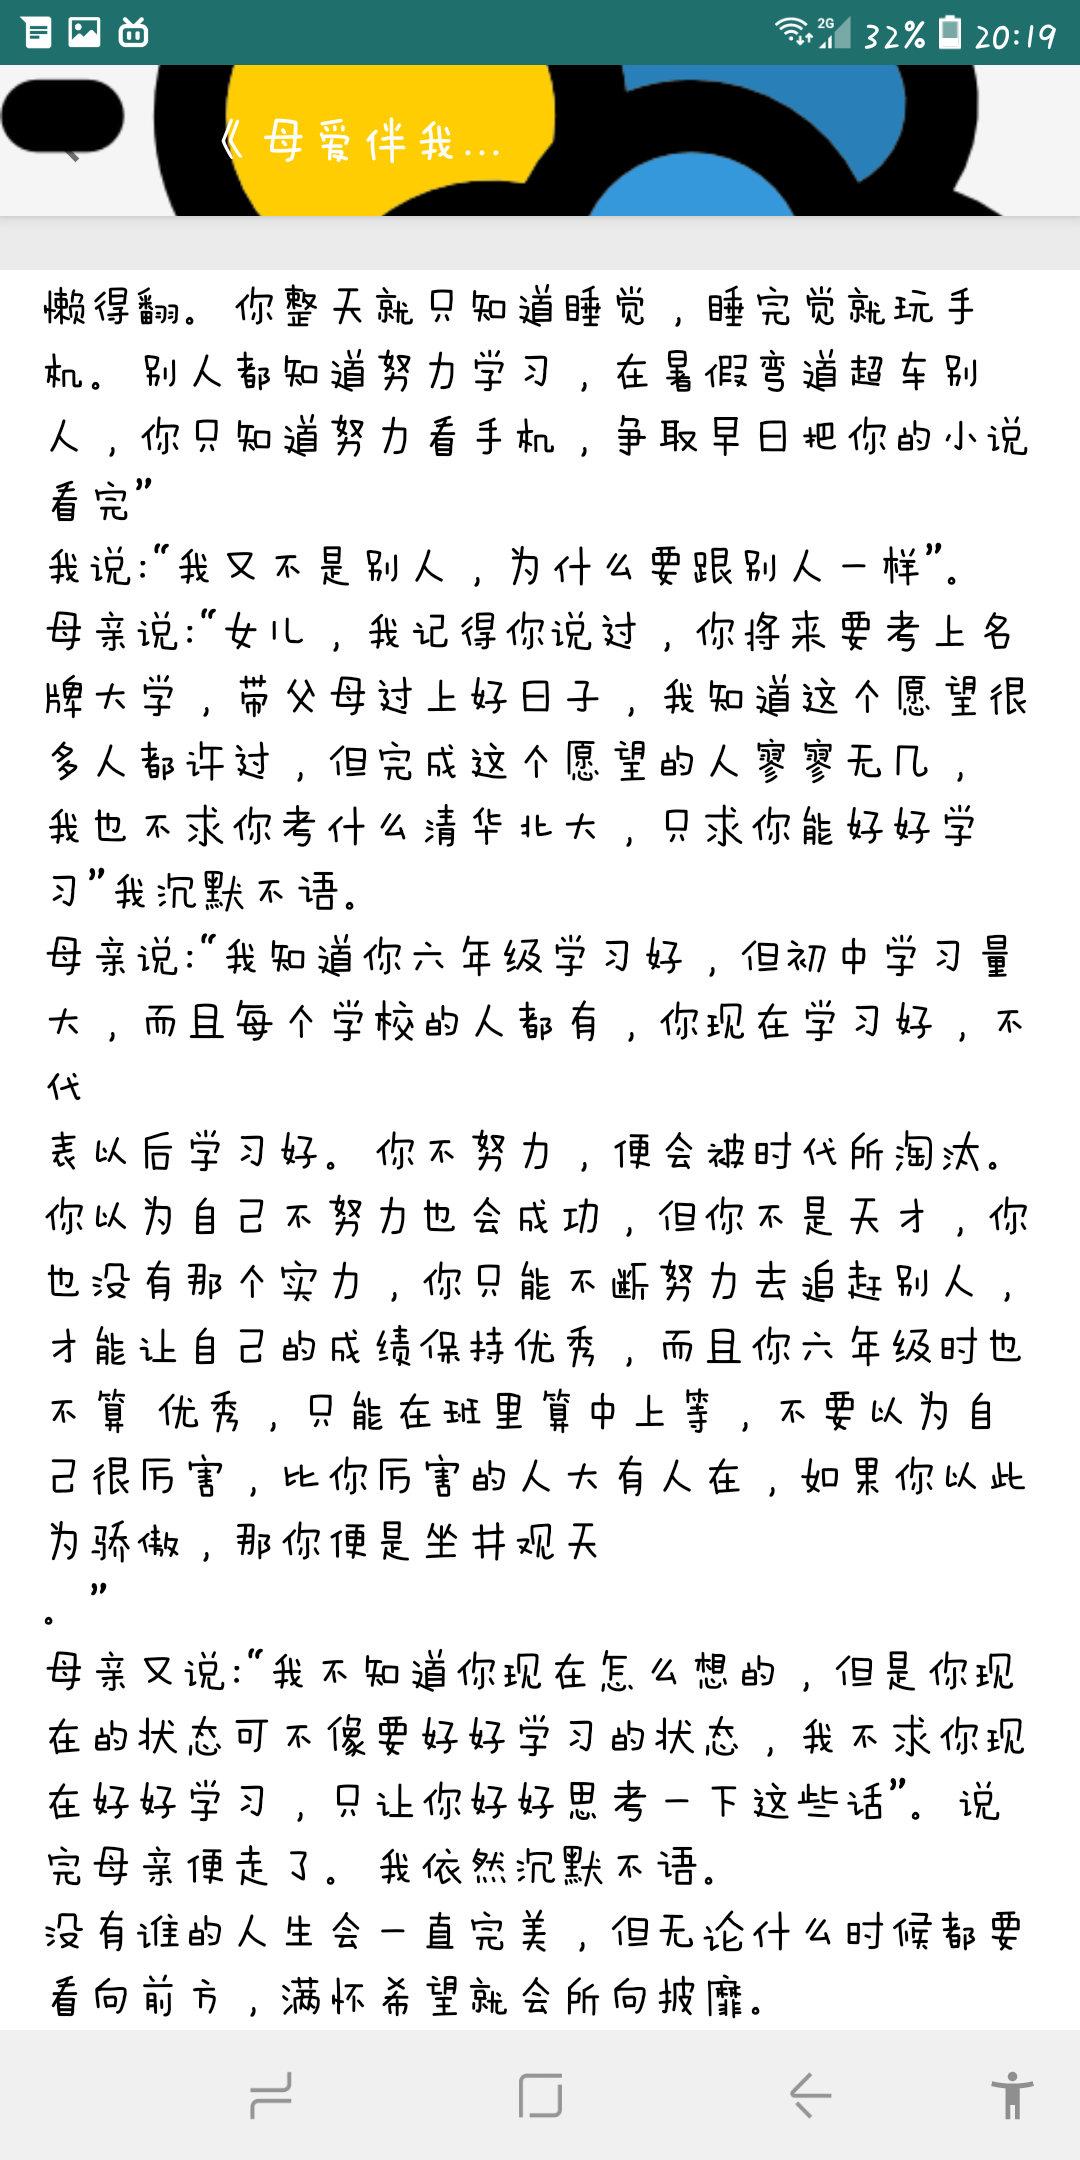 2G 32% 20:19
《母爱伴我...
懒得翻。你整天就只知道睡觉，睡完觉就玩手
机。别人都知道努力学习，在暑假弯道超车别
人，你只知道努力看手机，争取早日把你的小说
看完”
我说:“我又不是别人，为什么要跟别人一样”。
母亲说:“女儿，我记得你说过，你将来要考上名
牌大学，带父母过上好日子，我知道这个愿望很
多人都许过，但完成这个愿望的人寥寥无几，
我也不求你考什么清华北大，只求你能好好学
习”我沉默不语。
母亲说:“我知道你六年级学习好，但初中学习量
大，而且每个学校的人都有，你现在学习好，不
代
表以后学习好。你不努力，便会被时代所淘汰。
你以为自己不努力也会成功，但你不是天才，你
也没有那个实力，你只能不断努力去追赶别人，
才能让自己的成绩保持优秀，而且你六年级时也
不算 优秀，只能在班里算中上等，不要以为自
己很厉害，比你厉害的人大有人在，如果你以此
为骄傲，那你便是坐井观天
。”
母亲又说:“我不知道你现在怎么想的，但是你现
在的状态可不像要好好学习的状态，我不求你现
在好好学习，只让你好好思考一下这些话”。说
完母亲便走了。我依然沉默不语。
没有谁的人生会一直完美，但无论什么时候都要
看向前方，满怀希望就会所向披靡。